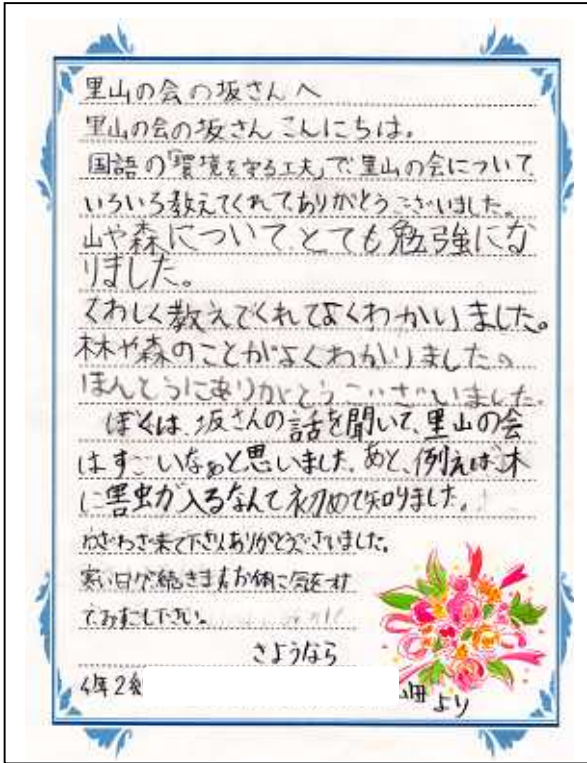 里山の会の坂さんへ
里山の会の坂さんこんにちは。
国語の「環境を守る工夫」で、里山の会について
いろいろ教えてくれてありがとうございました。
山や森について、とても勉強にな
りました。
くわしく教えてくれてよくわかりました。
林や森のことがよくわかりました。
ほんとうにありがとうございました。
ぼくは、坂さんの話を聞いて、里山の会
はすごいなぁと思いました。あと、例えば、木
に害虫が入るなんて初めて知りました。
わざわざ来て下さりありがとうございました。
寒い日が続きますお体に気をつけ
ておすごし下さい。
さようなら
4年2組
より